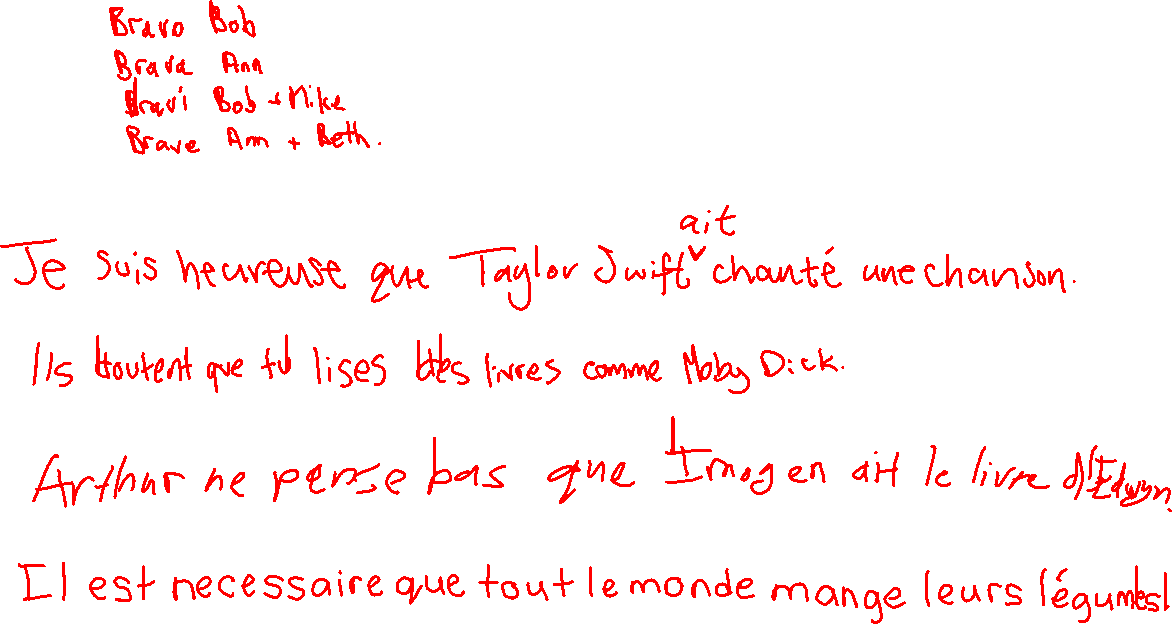 Bravo Bob
Brava Ann
Bravi Bob + Mike
Brave Ann + Beth.
ait
Je suis heureuse que Taylor Swift chanté une chanson.
Ils doutent que tu lises des livres comme Moby Dick.
Arthur ne pense pas que Imogen ait le livre d'Edwyn.
Il est necessaire que tout le monde mange leurs légumes!